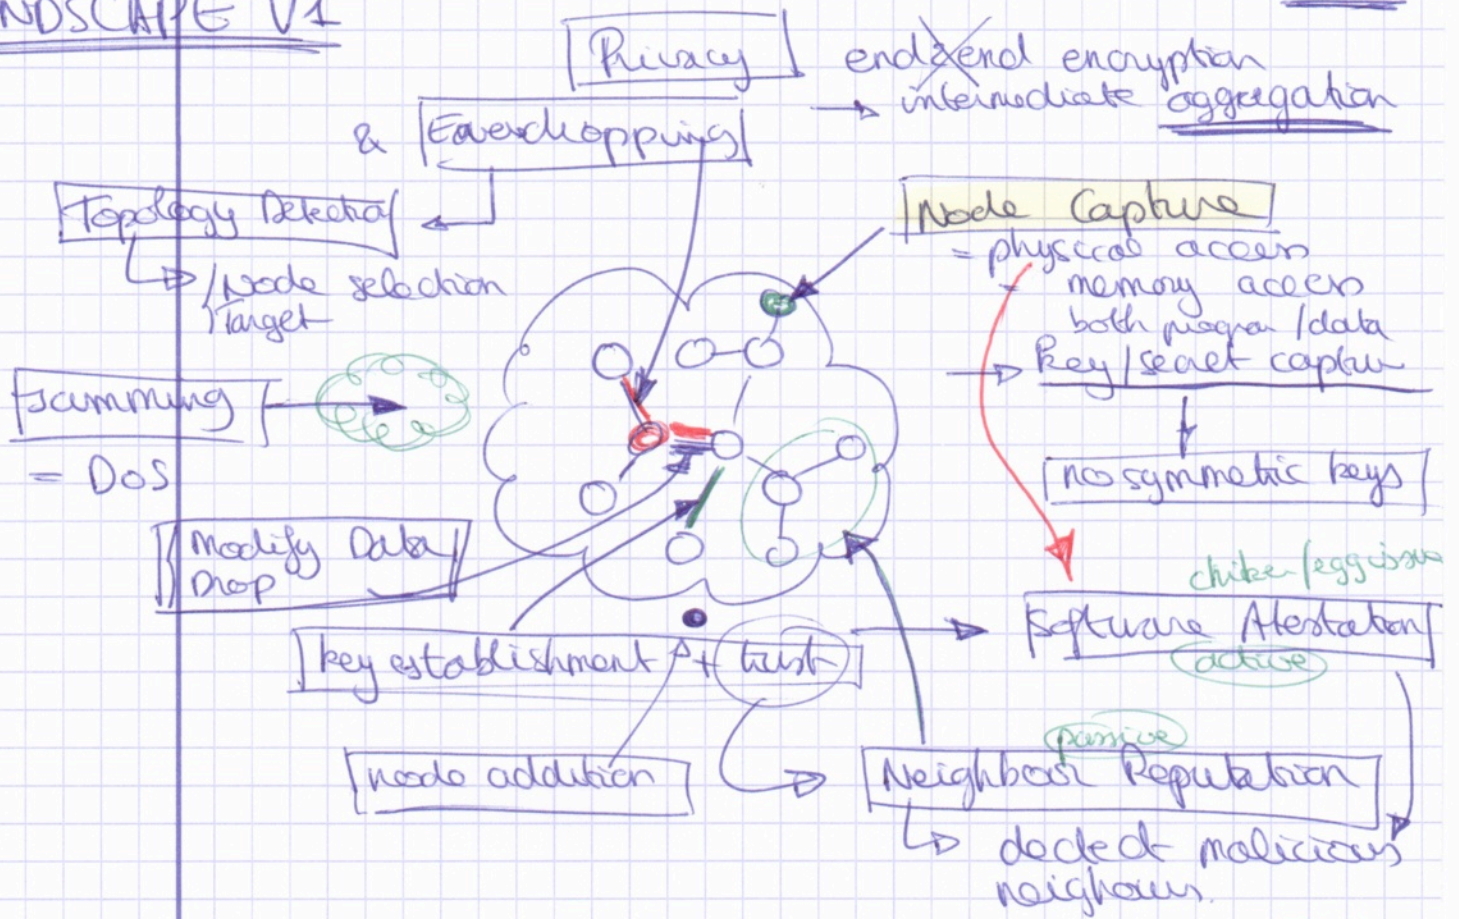 NDSCAPE V1
Privacy
end2end encryption
→ intermediate aggregation
& Eavesdropping
Topology Detection
Node selection
Target
Node Capture
= physical access
- memory access
both program/data
→ key/secret captur
no symmetric keys
Jamming
= DoS
Modify Data
Drop
key establishment + trust
chiken/egg issue
Software Atestation
active
node addition
passive
Neighbour Reputation
detect malicious
neighours.